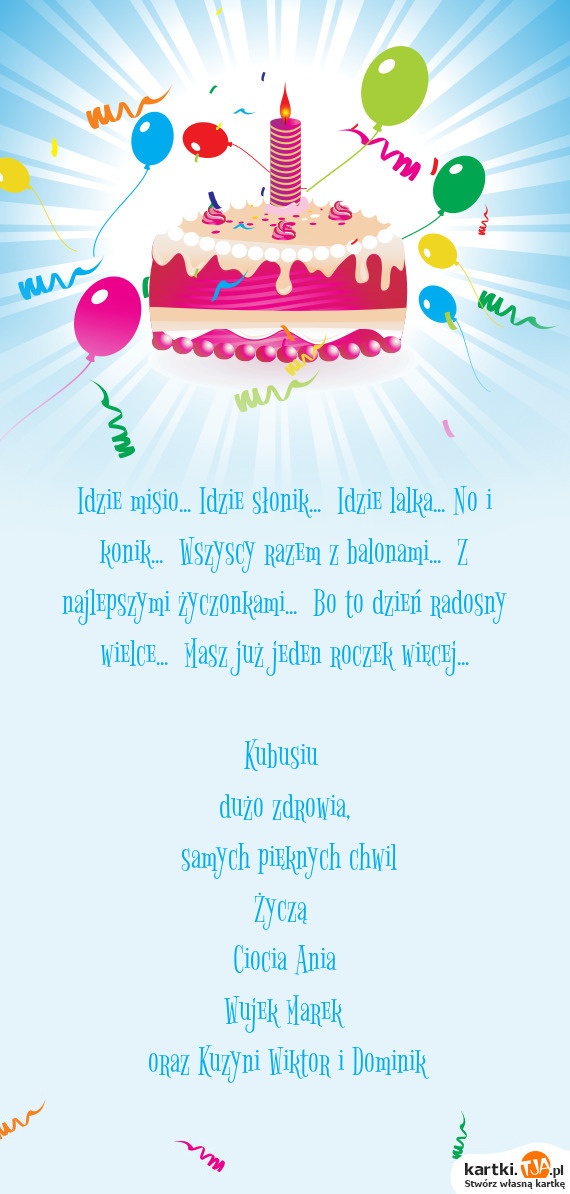 Idzie misio... Idzie słonik... Idzie lalka... No i
konik... Wszyscy razem z balonami... Z
najlepszymi życzonkami... Bo to dzień radosny
wielce... Masz już jeden roczek więcej...
Kubusiu
dużo zdrowia,
samych pięknych chwil
Życzą
Ciocia Ania
Wujek Marek
oraz Kuzyni Wiktor i Dominik
kartki.TJA.pl
Stwórz własną kartkę